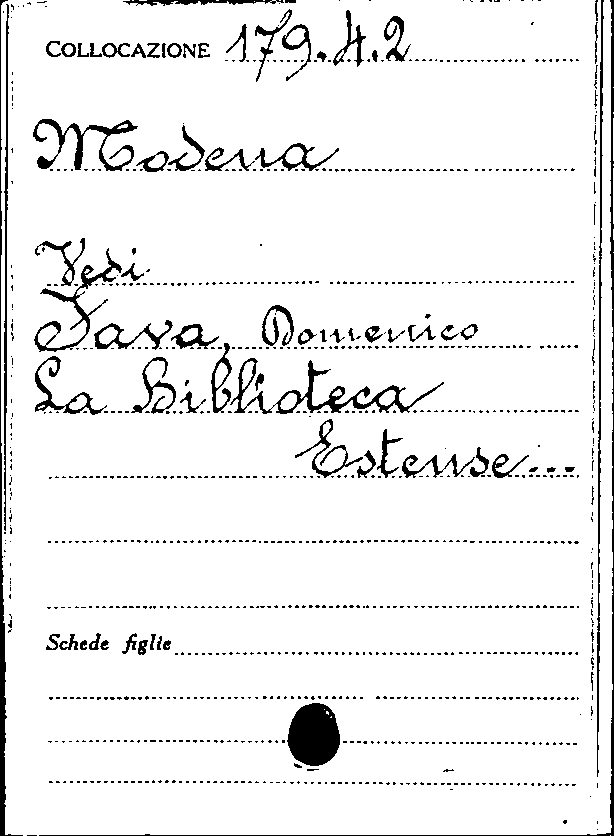 COLLOCAZIONE 179.4.2
Modena
Vedi
Fava, Domenico
La Biblioteca
Estense...
Schede figlie